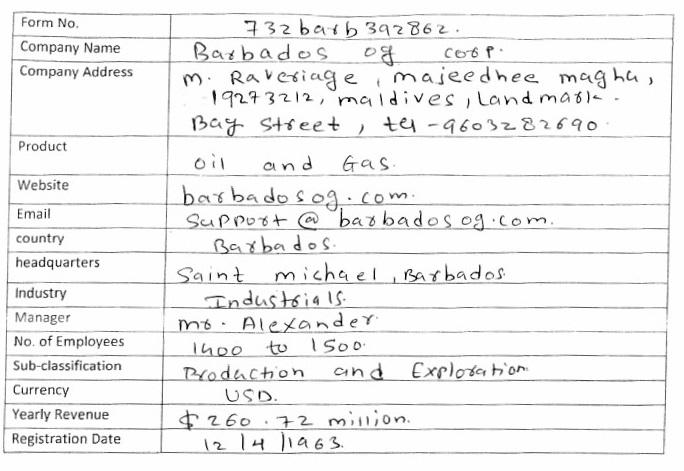 Form No. 732barb392862.
Company Name Barbados og corp.
Company Address M. Raveriage, majeedhee magha,
19273212, maldives, Landmark -
Bay Street, tel - 9603282690.
Product oil and Gas.
Website barbadosog.com.
Email support@barbadosog.com.
country Barbados.
headquarters Saint michael, Barbados.
Industry Industrials.
Manager mr. Alexander.
No. of Employees 1400 to 1500.
Sub-classification Production and Exploration.
Currency USD.
Yearly Revenue $260.72 million.
Registration Date 12/4/1963.